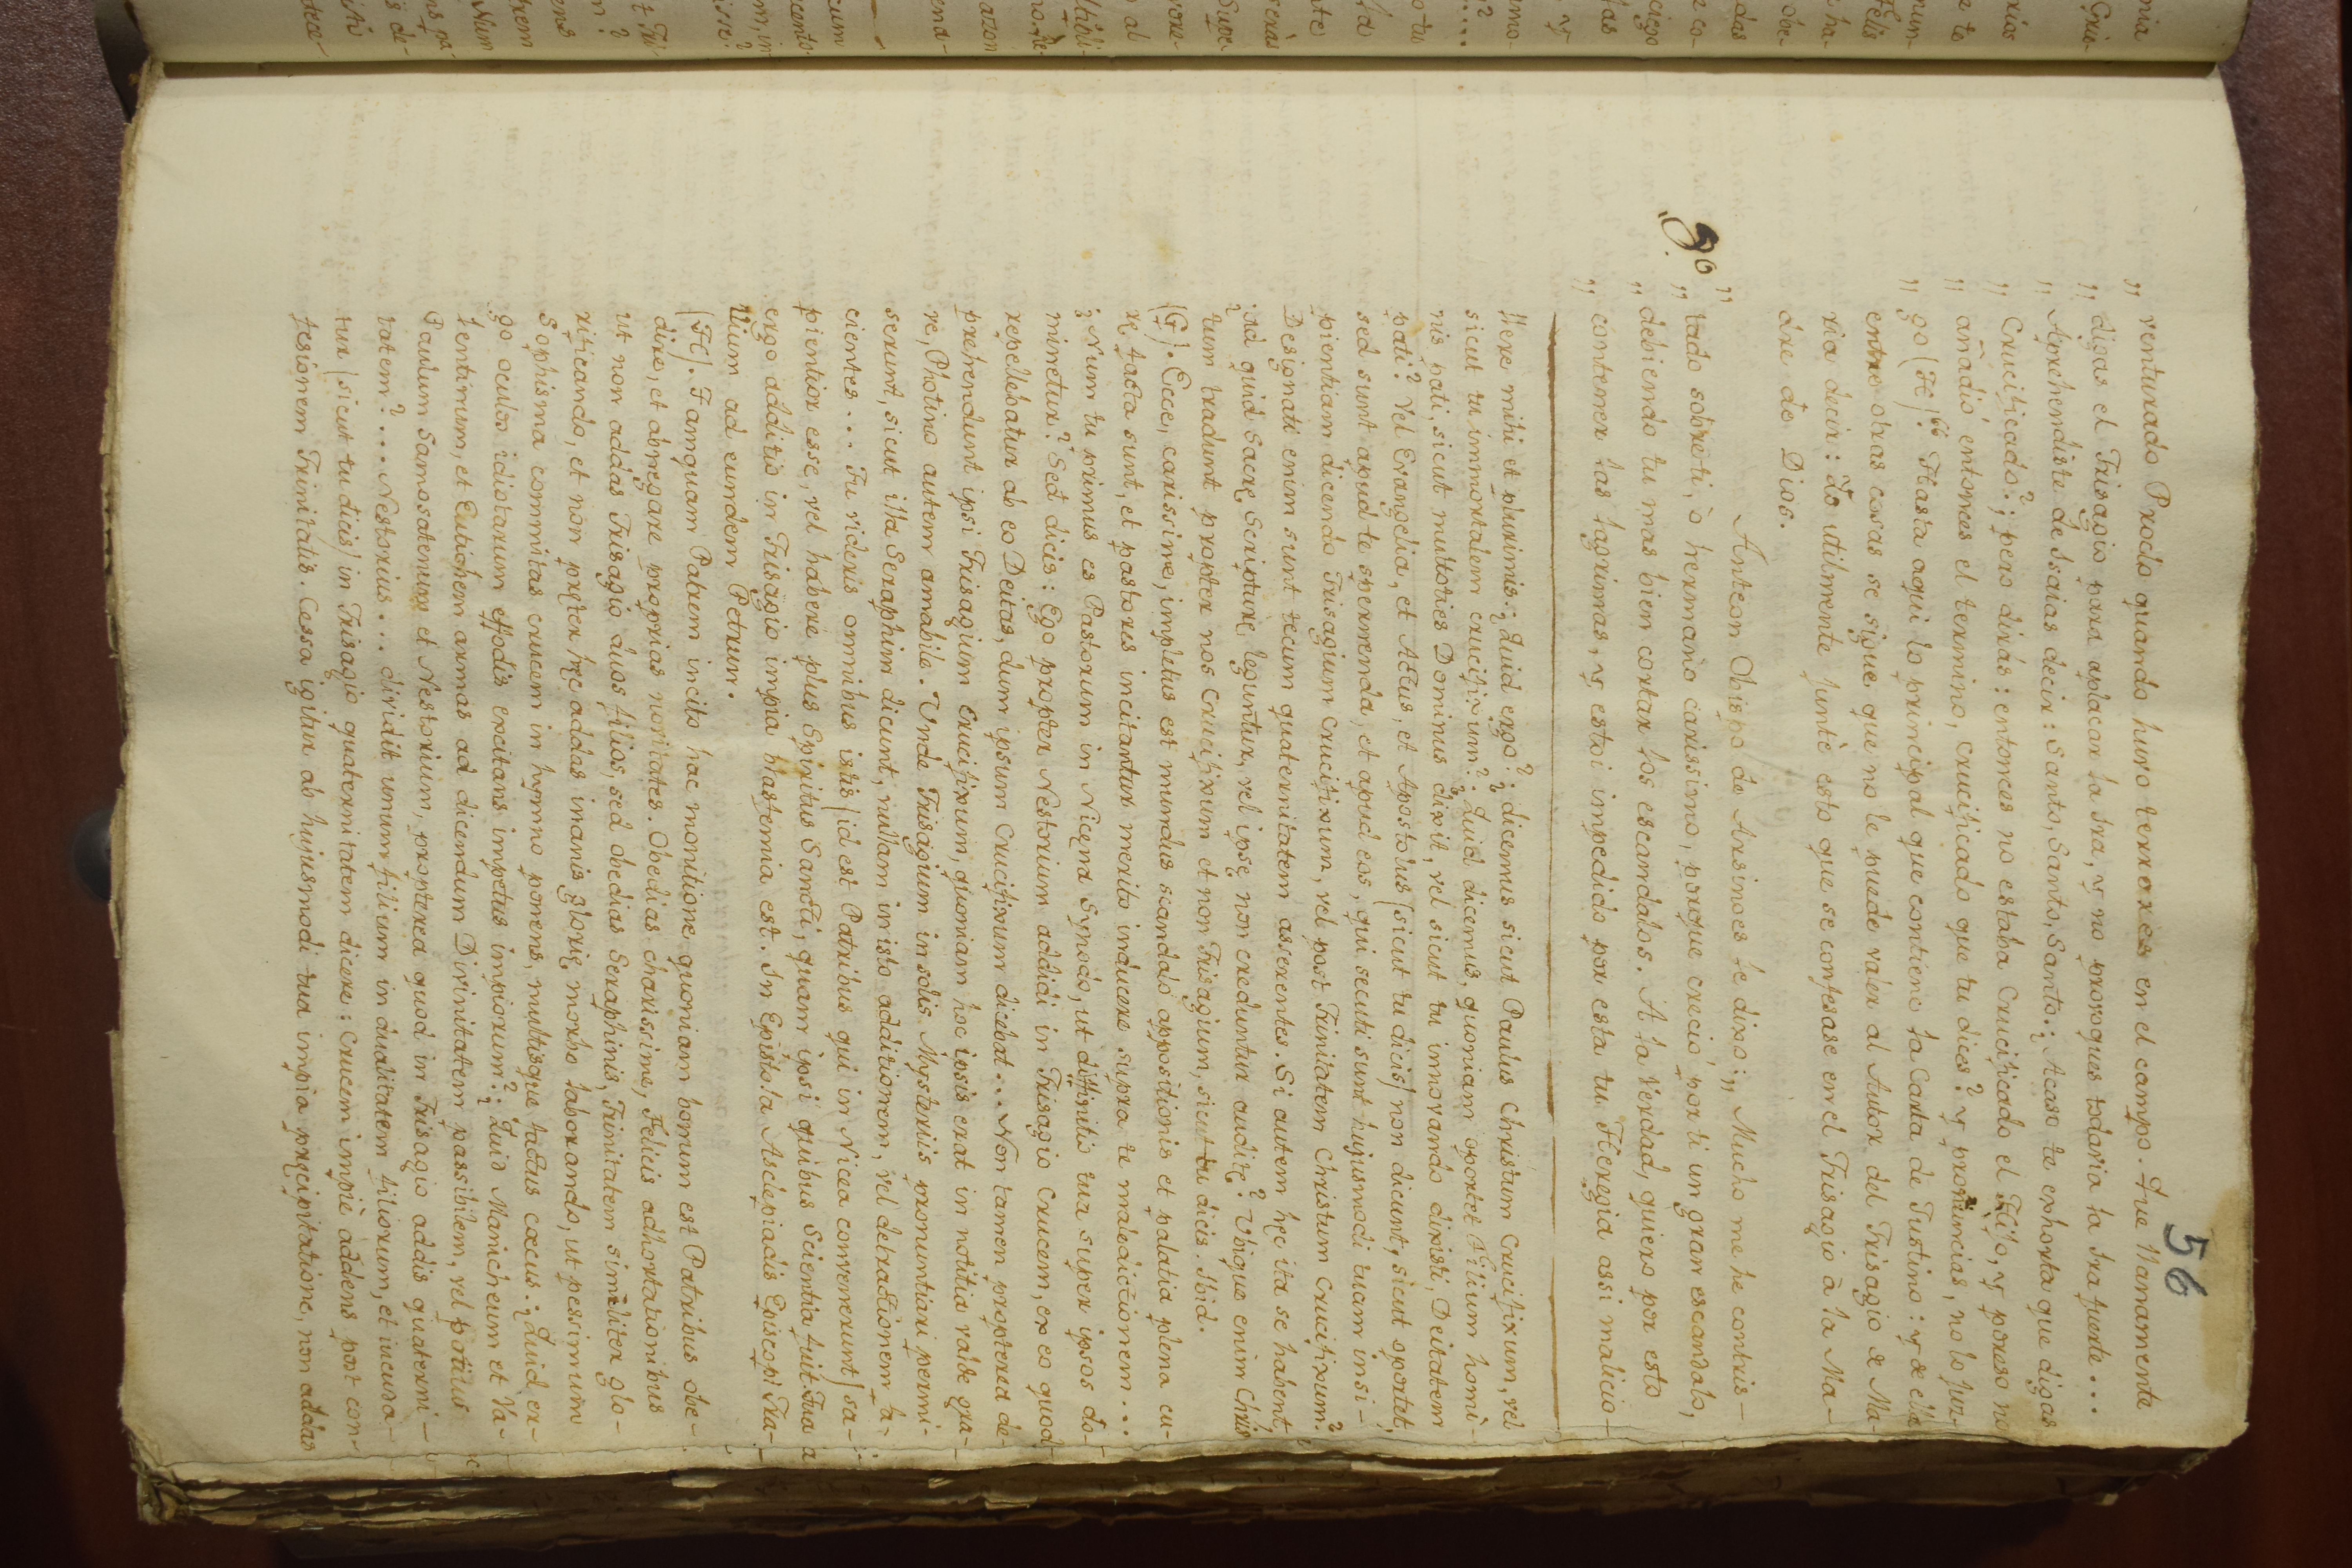 56
„ venturado Proclo quando huvo terrores en el campo. Que llanamente
„ digas el Trisagio para aplacar la ira, y no provoques todavia la ira fuerte...
„ Aprehendiste de Isaias decir: Santo, Santo, Santo: ¿ Acaso te exhorta que digas
„ Crucificado?; pero dirás: entonces no estaba Crucificado el Hijo, y poreso no
„ añadió entonces el termino, Crucificado que tu dices? y pronuncias, no lo juz-
„ go (H)." Hasta aqui lo principal que contiene la Carta de Justino: y de ella
entre otras cosas se sigue que no le puede valer al Autor del Trisagio de Ma-
ria decir: Yo utilmente junte esto que se confesase en el Trisagio à la Ma-
dre de Dios.
Anteon Obispo de Arsinoes le dixo: „ Mucho me he contris-
9º
„ tado sobre ti, ò hermano carissimo, porque creciò por ti un gran escandalo,
„ debiendo tu mas bien cortar los escandalos. A la Verdad, quiero por esto
„ contener las lagrimas, y estoi impedido por esta tu Heregia assi malicio-
llere mihi et plurimis: ¿ Quid ergo? ¿ dicemus sicut Paulus Christum Crucifixum, vel
sicut tu immortalem crucifixum? ¿ Quid dicemus, quoniam oportet Filium homi-
nis pati, sicut multoties Dominus dixit, vel sicut tu innovando dixisti, Deitatem
pati? Vel Evangelia, et Actus, et Apostolus (sicut tu dicis) non dicunt, sicut oportet,
sed sunt apud te spernenda, et apud eos, qui secuti sunt hujusmodi tuam insi-
pientiam dicendo Trisagium Crucifixum, vel post Trinitatem Christum Crucifixum?
Designati enim sunt tecum quaternitatem asserentes. Si autem hęc ita se habent,
ad quid Sacrę Scripturę leguntur, vel ipsę non creduntur auditę? Ubique enim Chris-
tum tradunt propter nos Crucifixum et non Trisagium, sicut tu dicis. Ibid.
(G). Ecce, carissime, impletus est mundus scandalo appositionis et palatia plena cu-
rę facta sunt, et pastores incitantur merito inducere supra te maledictionem...
¿ Num tu primus es Pastorum in Nicęna Synodo, ut diffinitio tua super ipsos do-
minetur? Sed dicis: Ego propter Nestorium addidi in Trisagio Crucem, ex eo quod
repellebatur ab eo Deitas, dum ipsum Crucifixum dicebat... Non tamen propterea de-
prehendunt ipsi Trisagium Crucifixum, quoniam hoc ipsis erat in notitia valde gra-
ve, Photino autem amabile. Unde Trisagium in solis Mysteriis pronuntiari permi-
serunt, sicut illa Seraphim dicunt, nullam in isto additionem, vel detractionem fa-
cientes... Tu videris omnibus istis (id est Patribus qui in Nicea convenerunt) sa-
pientior esse, vel habere plus Spiritus Sancti, quam ipsi quibus Scientia fuit Tua
ergo additio in Trisagio impia blasfemia est. In Epistola Asclepiadis Episcopi Tra-
llium ad eumdem Petrum.
(H). Tamquam Patrem incito hac monitione, quoniam bonum est Patribus obe-
dire, et abnegare proprias novitates. Obedias charissime, Felicis adhortationibus
ut non addas Trisagio duos filios, sed obedias Seraphinis, Trinitatem similiter glo-
rificando, et non pręter hęc addas inanis glorię morbo laborando, ut pessimum
Sophisma committas crucem in hymno ponens, multisque factus cœcus: ¿ Quid er-
go oculos idiotarum effodis excitans impetus impiorum? ¿ Quid Manicheum et Va-
lentinum, et Eutichem armas ad dicendum Divinitatem passibilem, vel potius
Paulum Samosatenum et Nestorium, propterea quod in Trisagio addis quaterni-
tatem?... Nestorius... dividit unum filium in dualitatem filiorum, et iucuna-
tur (sicut tu dicis) in Trisagio quaternitatem dicere: Crucem impiè addens post con-
fesionem Trinitatis. Cessa igitur ab hujusmodi tua impia pręcipitatione, non addas